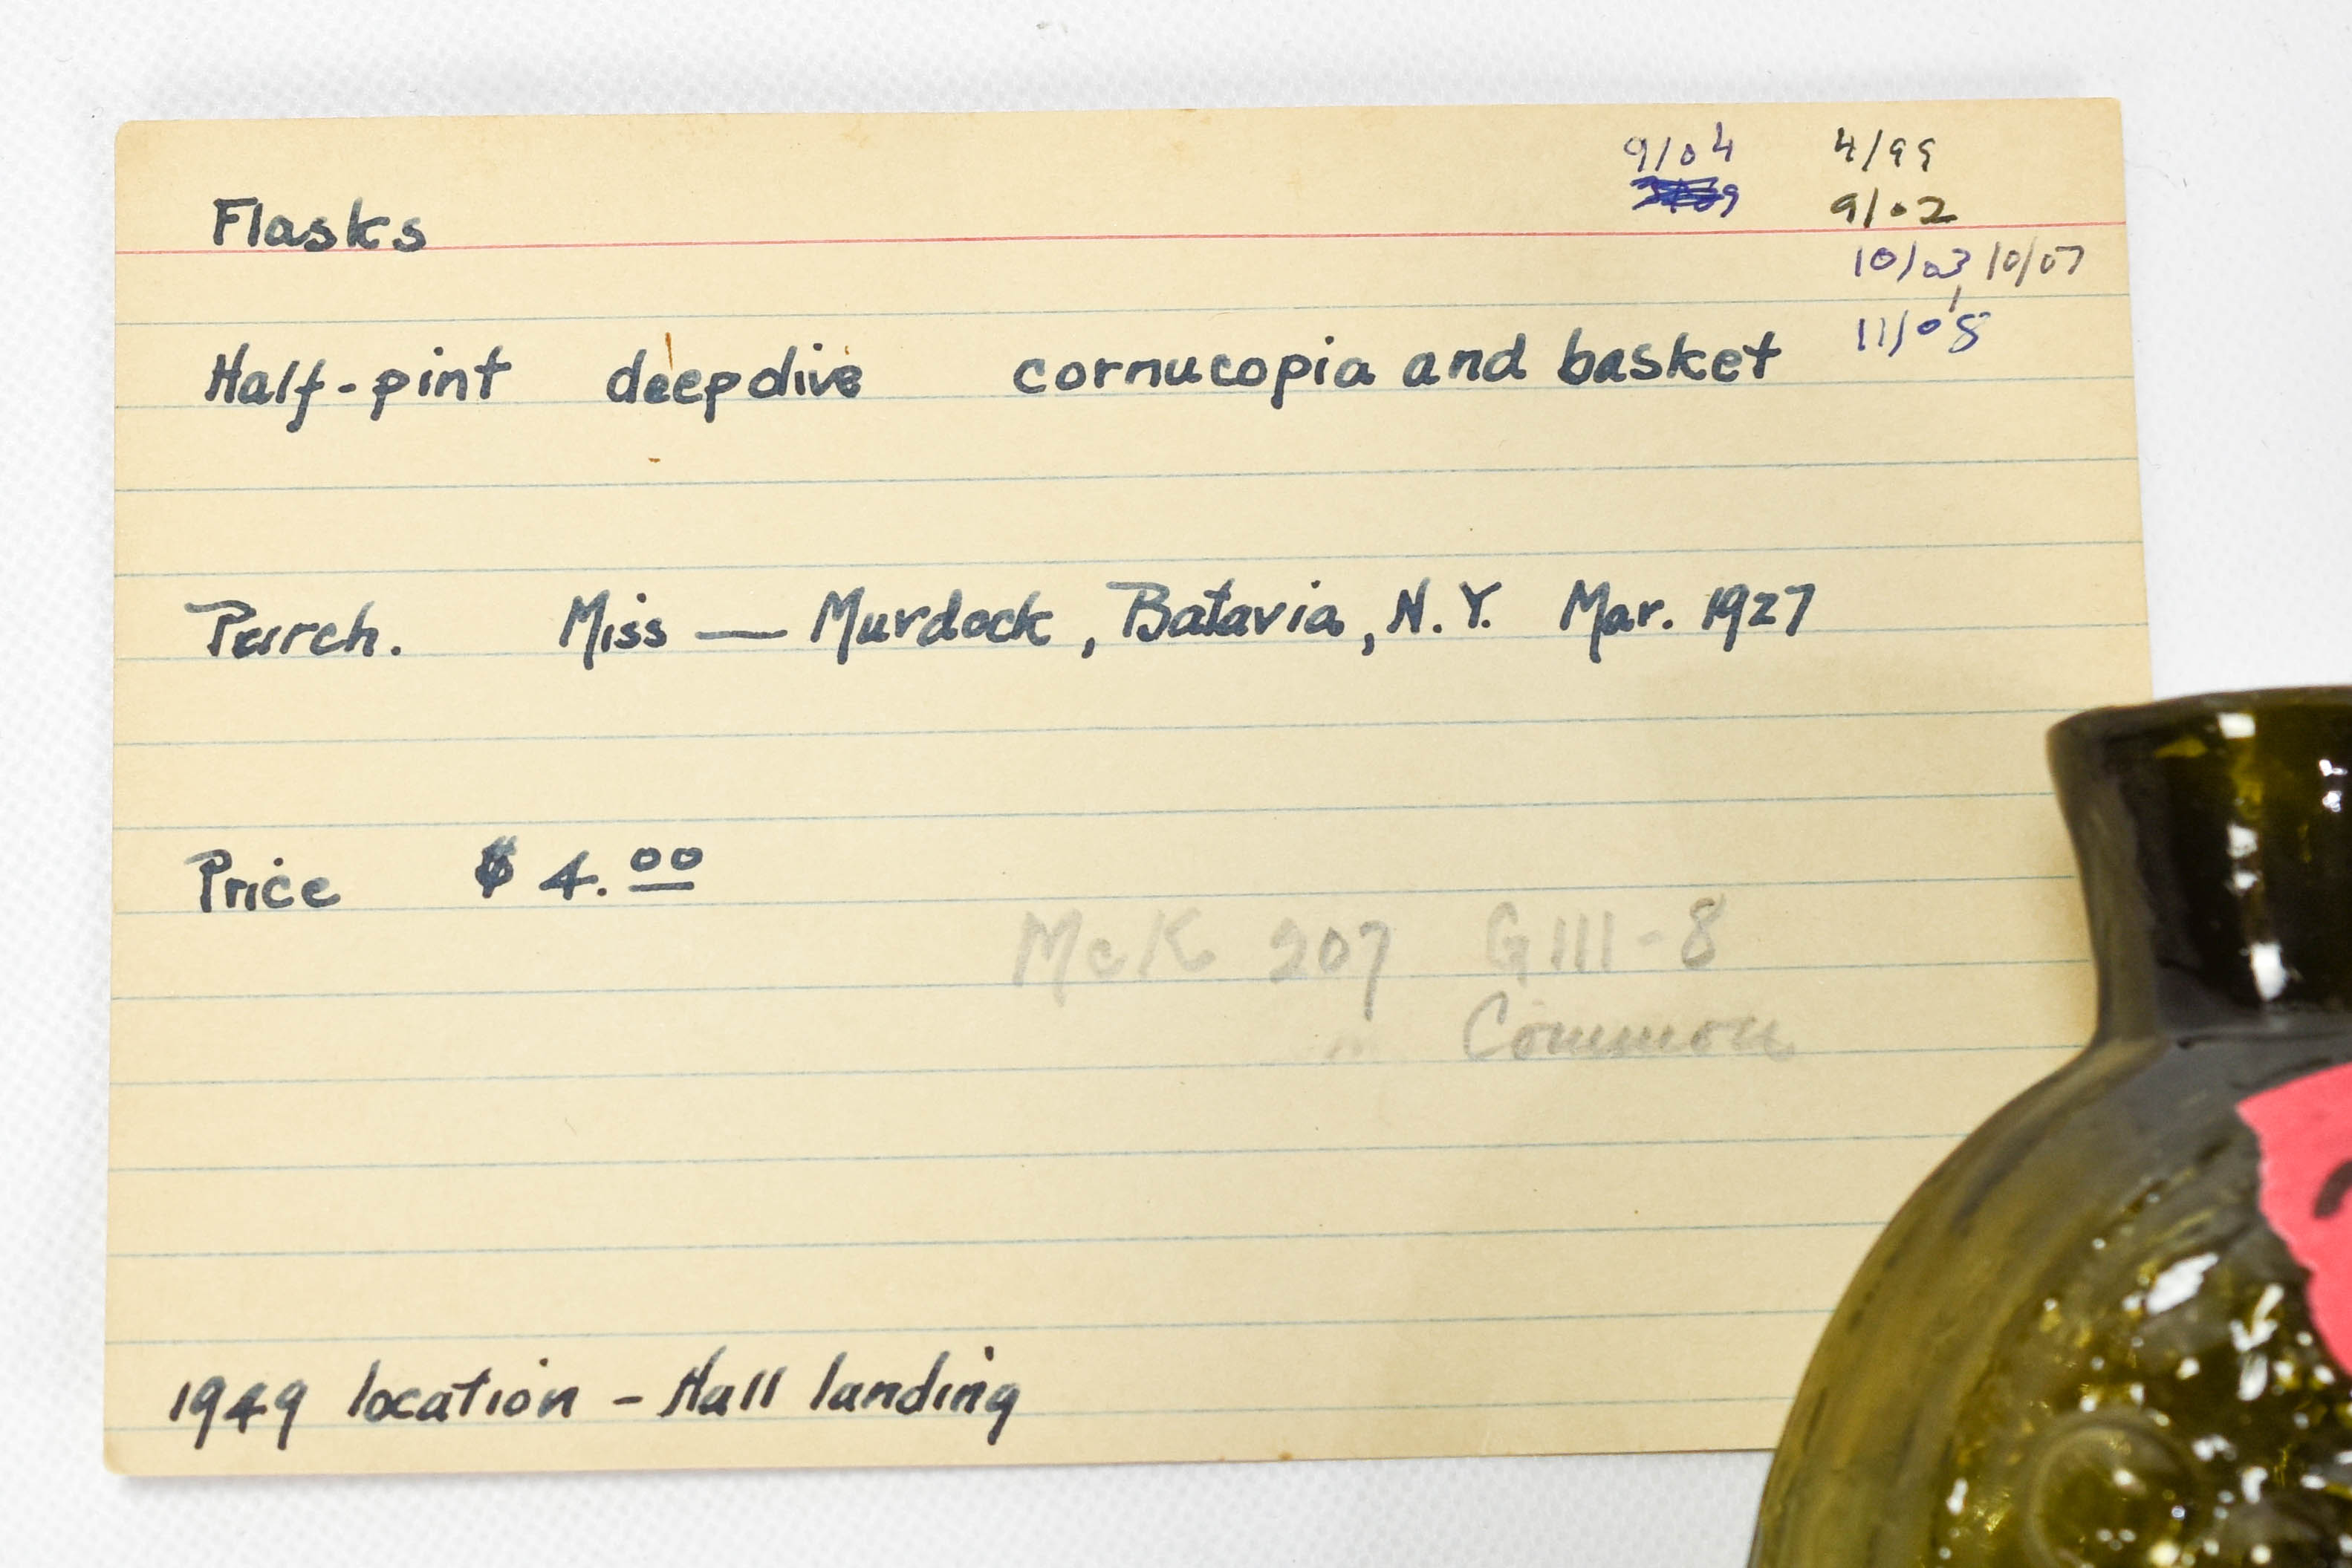 9/04 4/99
9/02
Flasks
10/03, 10/07
11/08
Half-pint deepdive cornucopia and basket
Purch. Miss — Murdock, Batavia, N.Y. Mar. 1927
Price $4.00
McK 207 G111-8
Common
1949 location - Hall landing